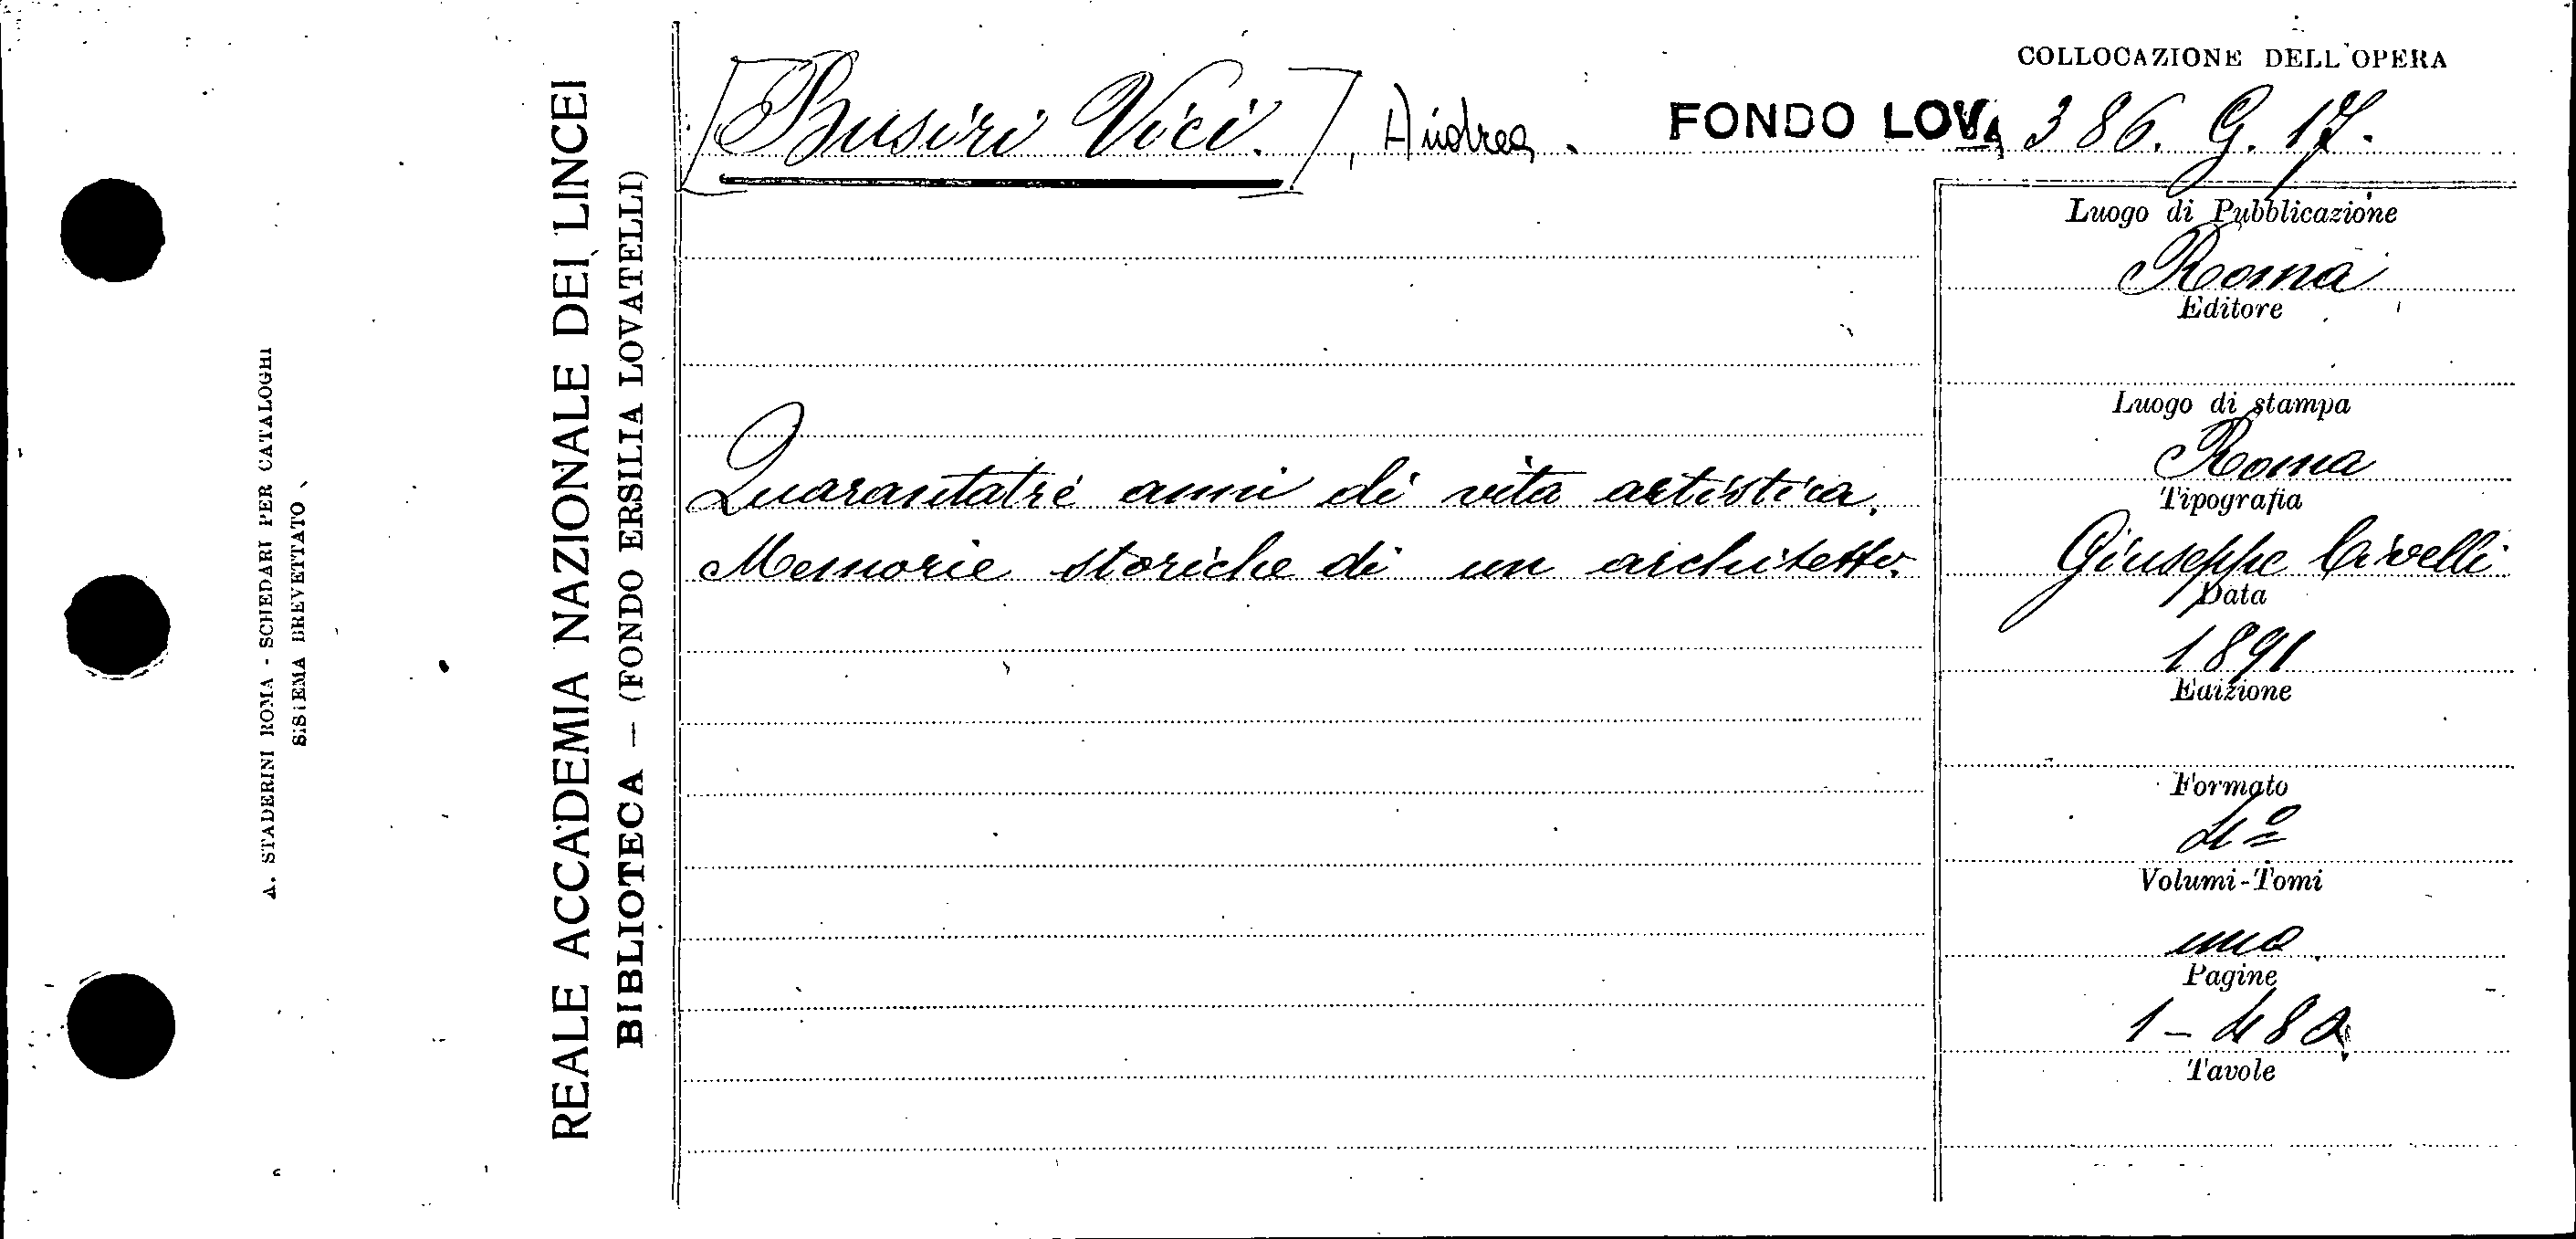 A. STADERINI ROMA - SCHEDARI PER CATALOGHI
SISTEMA BREVETTATO
REALE ACCADEMIA NAZIONALE DEI LINCEI
BIBLIOTECA — (FONDO ERSILIA LOVATELLI)
[Busiri Vici.], Andrea.
Quarantatrè anni di vita artistica.
Memorie storiche di un architetto.
COLLOCAZIONE DELL'OPERA
FONDO LOV. 386. G. 17.
Luogo di Pubblicazione
Roma
Editore
Luogo di stampa
Roma
Tipografia
Giuseppe Civelli
Data
1891
Edizione
Formato
4º
Volumi-Tomi
uno
Pagine
Tavole